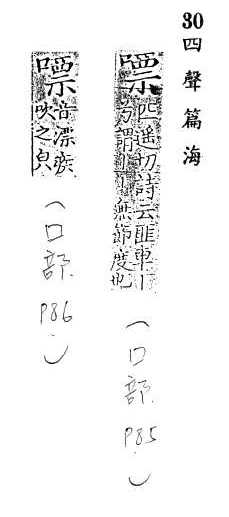 30四聲篇海
嘌
匹遥切詩云匪車丨
兮謂丨丨無節度也
(口部 P85)
嘌
音漂疾
吹之皃
(口部 P86)